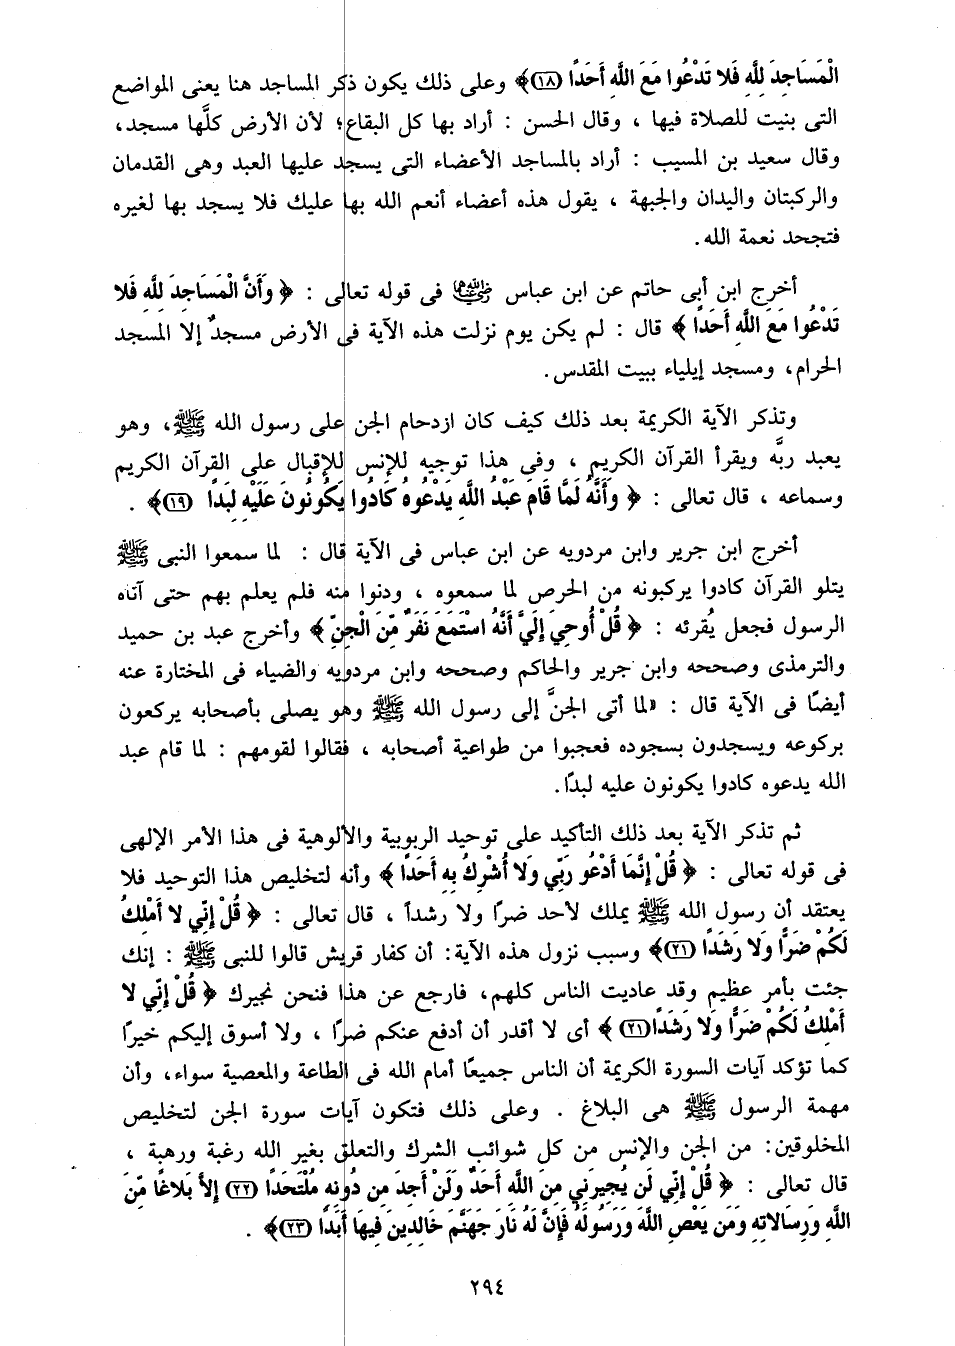 الْمَسَاجِدَ لِلَّهِ فَلا تَدْعُوا مَعَ اللَّهِ أَحَدًا (١٨)﴾ وعلى ذلك يكون ذكر المساجد هنا يعنى المواضع
التى بنيت للصلاة فيها ، وقال الحسن : أراد بها كل البقاع؛ لأن الأرض كلَّها مسجد،
وقال سعيد بن المسيب : أراد بالمساجد الأعضاء التى يسجد عليها العبد وهى القدمان
والركبتان واليدان والجبهة ، يقول هذه أعضاء أنعم الله بها عليك فلا يسجد بها لغيره
فتجحد نعمة الله.
أخرج ابن أبى حاتم عن ابن عباس رضي الله عنهما فى قوله تعالى : ﴿ وَأَنَّ الْمَسَاجِدَ لِلَّهِ فَلا
تَدْعُوا مَعَ اللَّهِ أَحَدًا ﴾ قال : لم يكن يوم نزلت هذه الآية فى الأرض مسجدٌ إلا المسجد
الحرام، ومسجد إيلياء ببيت المقدس.
وتذكر الآية الكريمة بعد ذلك كيف كان ازدحام الجن على رسول الله ﷺ، وهو
يعبد ربَّه ويقرأ القرآن الكريم ، وفى هذا توجيه للإنس للإقبال على القرآن الكريم
وسماعه ، قال تعالى : ﴿ وَأَنَّهُ لَمَّا قَامَ عَبْدُ اللَّهِ يَدْعُوهُ كَادُوا يَكُونُونَ عَلَيْهِ لِبَدًا (١٩)﴾ .
أخرج ابن جرير وابن مردويه عن ابن عباس فى الآية قال : لما سمعوا النبى ﷺ
يتلو القرآن كادوا يركبونه من الحرص لما سمعوه ، ودنوا منه فلم يعلم بهم حتى آتاه
الرسول فجعل يُقرئه : ﴿ قُلْ أُوحِيَ إِلَيَّ أَنَّهُ اسْتَمَعَ نَفَرٌ مِّنَ الْجِنِّ ﴾ وأخرج عبد بن حميد
والترمذى وصححه وابن جرير والحاكم وصححه وابن مردويه والضياء فى المختارة عنه
أيضًا فى الآية قال : «لما أتى الجنَّ إلى رسول الله ﷺ وهو يصلى بأصحابه يركعون
بركوعه ويسجدون بسجوده فعجبوا من طواعية أصحابه ، فقالوا لقومهم : لما قام عبد
الله يدعوه كادوا يكونون عليه لبدًا.
ثم تذكر الآية بعد ذلك التأكيد على توحيد الربوبية والألوهية فى هذا الأمر الإلهى
فى قوله تعالى : ﴿ قُلْ إِنَّمَا أَدْعُو رَبِّي وَلا أُشْرِكُ بِهِ أَحَدًا ﴾ وأنه لتخليص هذا التوحيد فلا
يعتقد أن رسول الله ﷺ يملك لأحد ضرًا ولا رشداً ، قال تعالى : ﴿ قُلْ إِنِّي لا أَمْلِكُ
لَكُمْ ضَرًّا وَلا رَشَدًا (٢١)﴾ وسبب نزول هذه الآية: أن كفار قريش قالوا للنبى ﷺ : إنك
جئت بأمر عظيم وقد عاديت الناس كلهم، فارجع عن هذا فنحن نجيرك ﴿ قُلْ إِنِّي لا
أَمْلِكُ لَكُمْ ضَرًّا وَلا رَشَدًا(٢١) ﴾ أى لا أقدر أن أدفع عنكم ضرًا ، ولا أسوق إليكم خيرًا
كما تؤكد آيات السورة الكريمة أن الناس جميعًا أمام الله فى الطاعة والمعصية سواء، وأن
مهمة الرسول ﷺ هى البلاغ . وعلى ذلك فتكون آيات سورة الجن لتخليص
المخلوقين: من الجن والإنس من كل شوائب الشرك والتعلق بغير الله رغبة ورهبة ،
قال تعالى : ﴿ قُلْ إِنِّي لَن يُجِيرَنِي مِنَ اللَّهِ أَحَدٌ وَلَنْ أَجِدَ مِن دُونِهِ مُلْتَحَدًا (٢٢) إِلاَّ بَلاغًا مِّنَ
اللَّهِ وَرِسَالاتِهِ وَمَن يَعْصِ اللَّهَ وَرَسُولَهُ فَإِنَّ لَهُ نَارَ جَهَنَّمَ خَالِدِينَ فِيهَا أَبَدًا (٢٣)﴾ .
٢٩٤